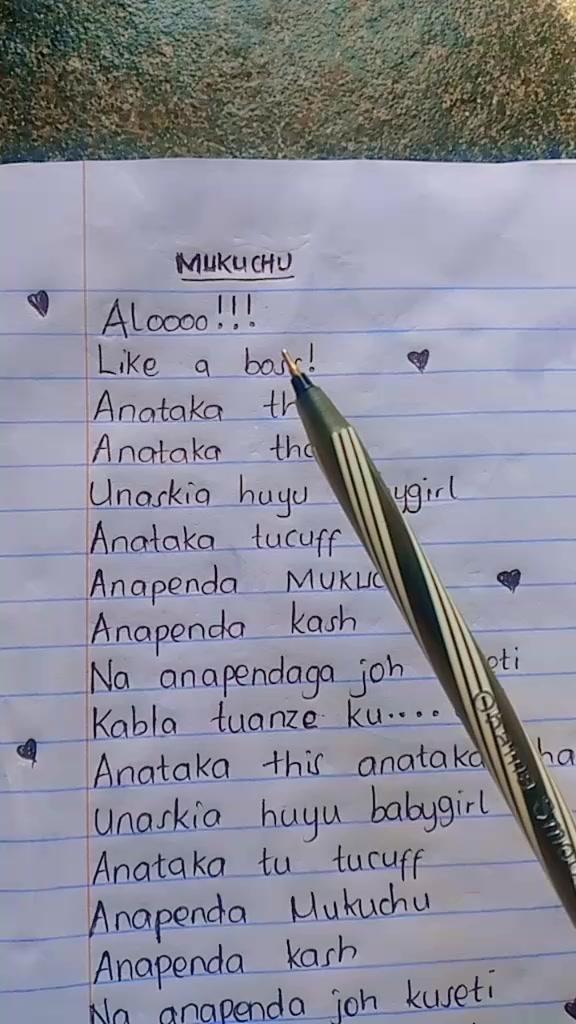 MUKUCHU
ALoooo!!!
Like a boss!
Anataka
Anataka
Unaskia huyu
Anataka tucuff
Anapenda
Anapenda kash
Na anapendaga joh
Kabla tuanze ku....
Anataka this anataka
Unaskia huyu babygirl
Anataka tu tucuff
Anapenda Mukuchu
Anapenda kash
Na anapenda joh kuseti